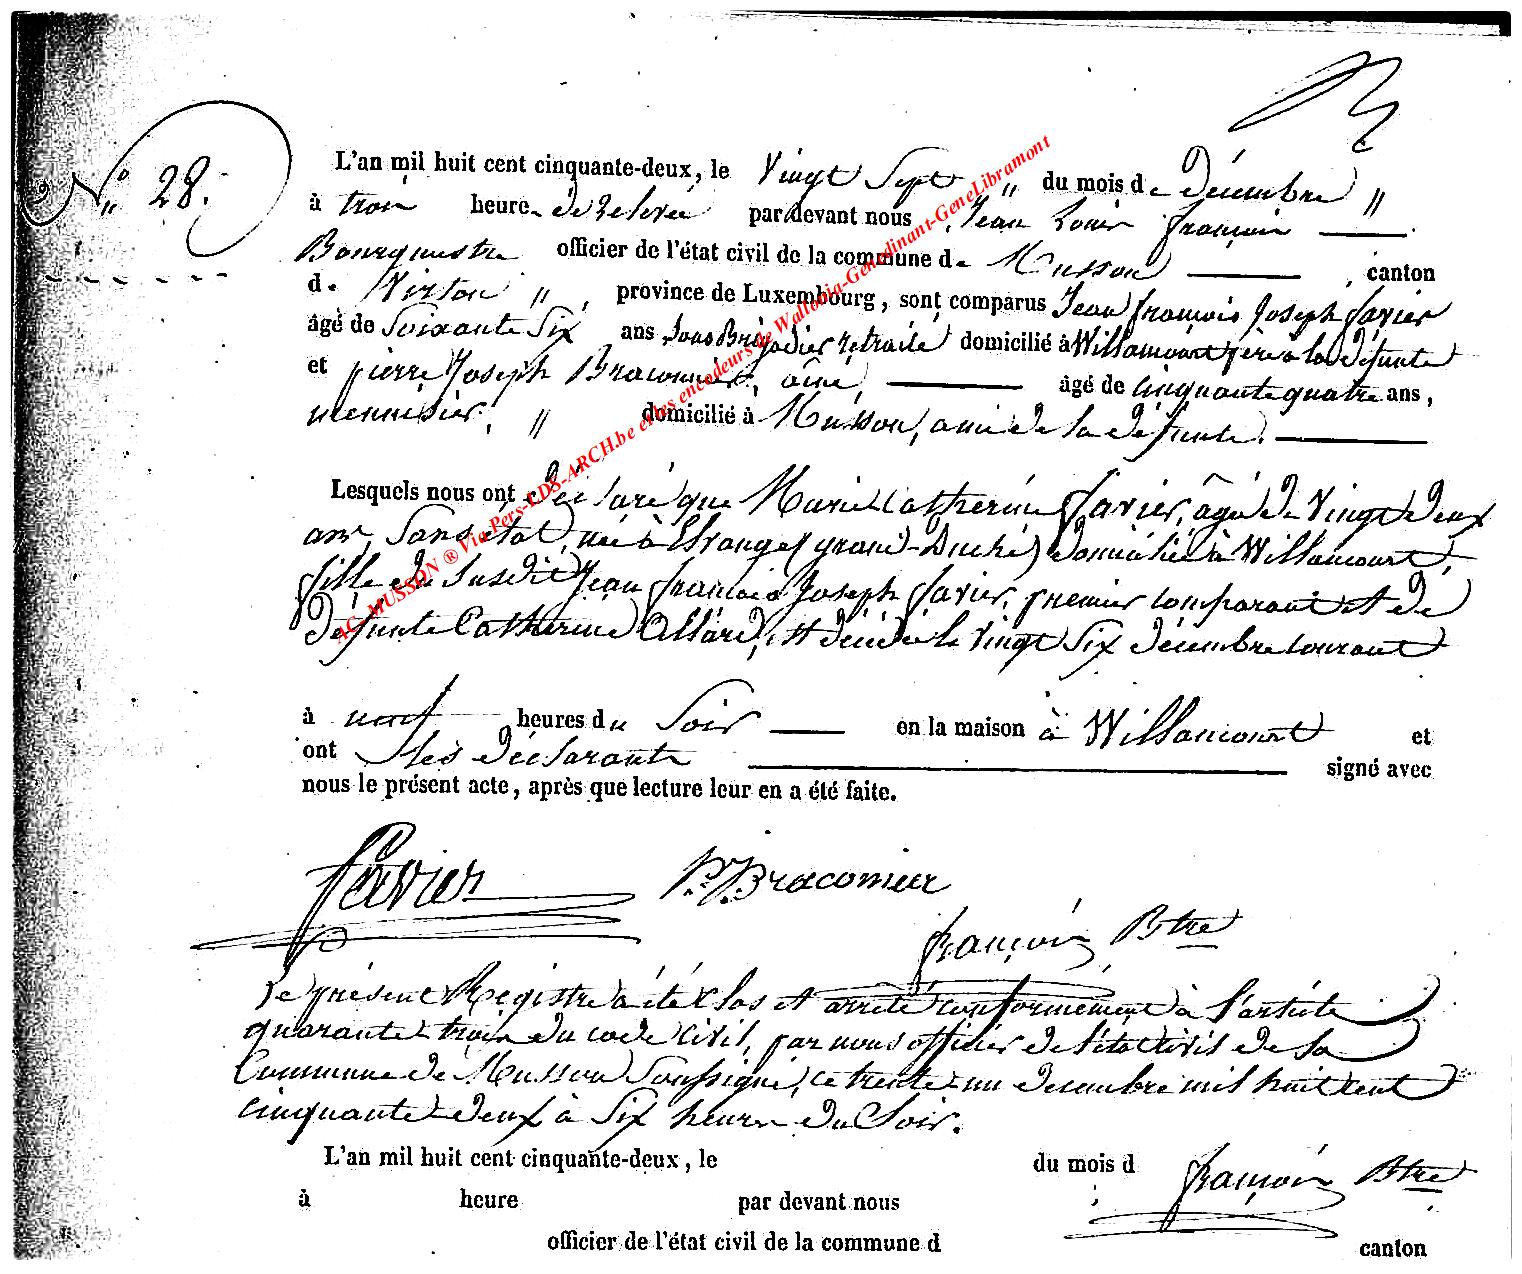 N° 28.
L'an mil huit cent cinquante-deux, le Vingt Sept " du mois de décembre "
à trois heures de relevée par devant nous, Jean Louis françois
Bourgmestre officier de l'état civil de la commune de Musson, canton
de Virton ", province de Luxembourg, sont comparus Jean françois Joseph favier
âgé de Soixante Six ans, Sous Brigadier retraité domicilié à Willancourt père à la défunte
et pierre Joseph Braconnier, ainé, âgé de cinquante quatre ans,
menuisier, " domicilié à Musson, ami de la défunte.
Lesquels nous ont déclaré que Marie Catherine favier, âgée de Vingt deux
ans, Sans état, née à (grand-Duché) domiciliée à Willancourt,
fille du Susdit Jean françois Joseph favier, premier comparant et de
défunte Catherine Allard, est décédée le Vingt Six décembre courant
à neuf heures du Soir en la maison à Willancourt et
ont les déclarants signé avec
nous le présent acte, après que lecture leur en a été faite.
favier P. J. Braconnier
françois Btre
Le présent Registre a été Clos et arrêté conformément à l'article
quarante-trois du code Civil, par nous officier de l'état Civil de la
Commune de Musson Soussigné, ce trente un decembre mil huit cent
cinquante-deux à Six heures du Soir.
L'an mil huit cent cinquante-deux, le du mois d françois Btre
à heure par devant nous
officier de l'état civil de la commune d canton
AC-MUSSON ® Via Pers-EDS-ARCH.be et les encodeurs de Wallonia-Genedinant-GeneLibramont